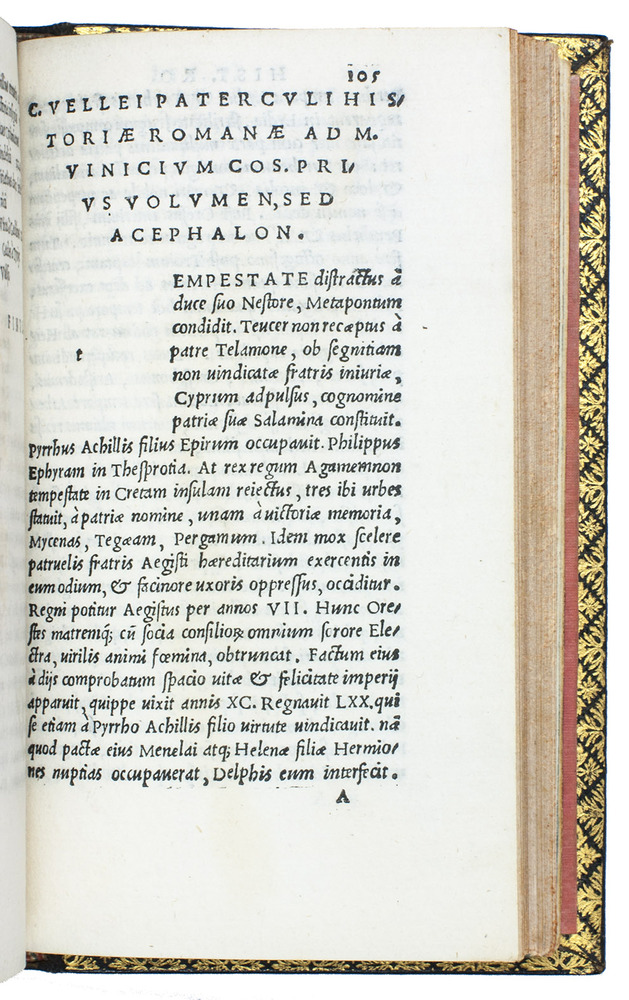 105
C. VELLEI PATERCVLI HIS/
TORIÆ ROMANÆ AD M.
VINICIVM COS. PRI/
VS VOLVMEN, SED
ACEPHALON.
t
EMPESTATE distractus à
duce suo Nestore, Metapontum
condidit. Teucer non recæptus à
patre Telamone, ob segnitiam
non uindicatæ fratris iniuriæ,
Cyprum adpulsus, cognomine
patriæ suæ Salamina constituit.
Pyrrhus Achillis filius Epirum occupauit. Philippus
Ephyram in Thesprotia. At rex regum Agamemnon
tempestate in Cretam insulam reiectus, tres ibi urbes
statuit, à patriæ nomine, unam à uictoriæ memoria,
Mycenas, Tegæam, Pergamum. Idem mox scelere
patruelis fratris Aegisti hæreditarium exercentis in
eum odium, & facinore uxoris oppressus, occiditur.
Regni potitur Aegistus per annos VII. Hunc Ore/
stes matremq; cū socia consilioꝝ omnium sorore Ele/
ctra, uirilis animi fœmina, obtruncat. Factum eius
à dijs comprobatum spacio uitæ & felicitate imperij
apparuit, quippe uixit annis XC. Regnauit LXX. qui
se etiam à Pyrrho Achillis filio uirtute uindicauit. nā
quod pactæ eius Menelai atq; Helenæ filiæ Hermio/
nes nuptias occupauerat, Delphis eum interfecit.
A